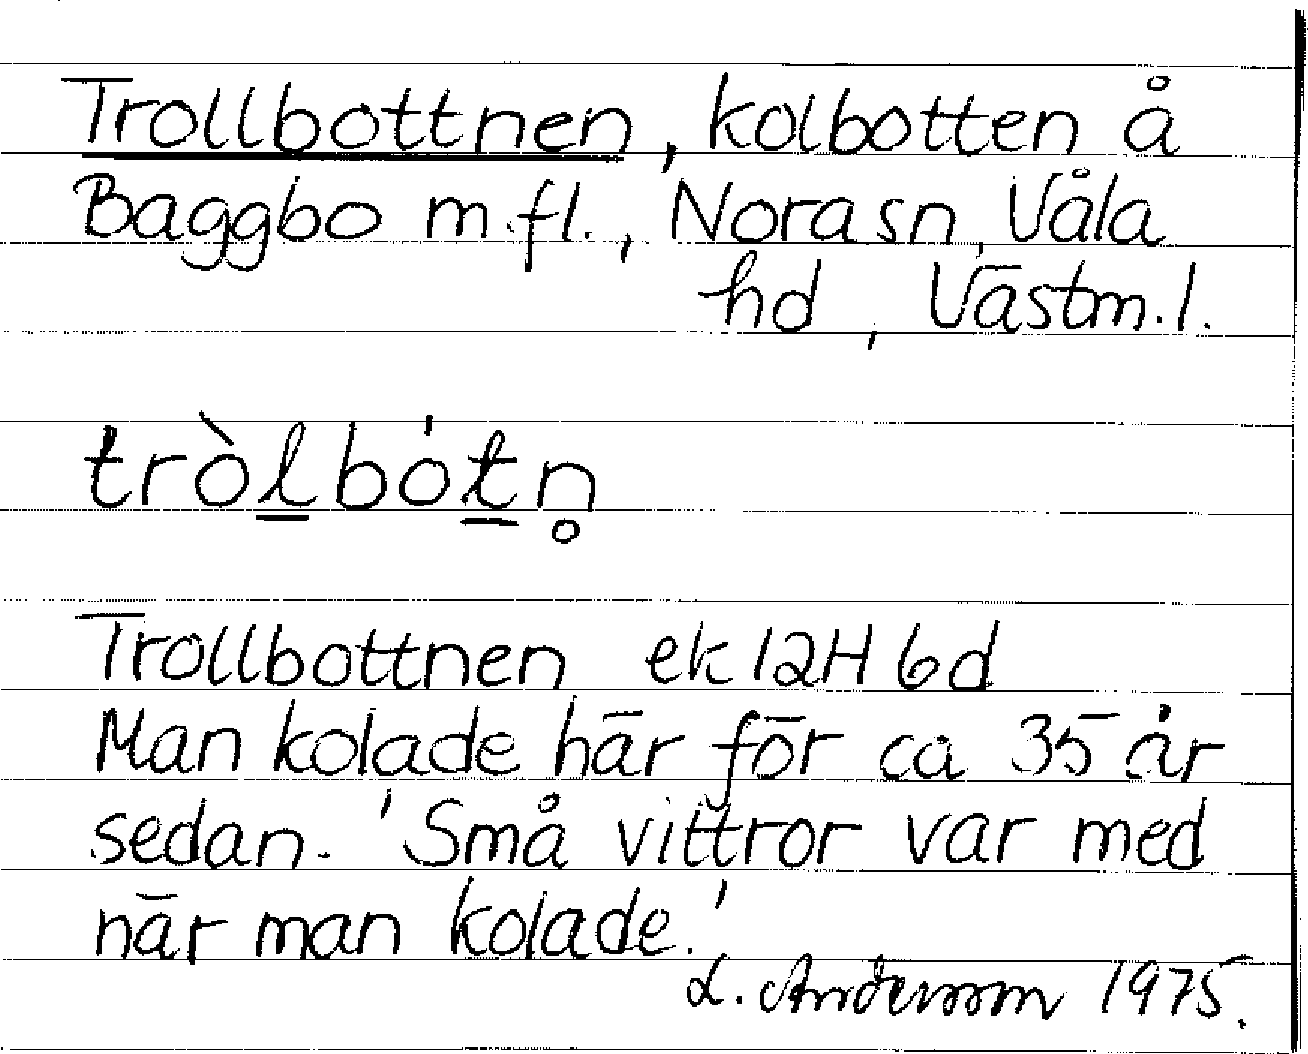 Trollbottnen, kolbotten å
Baggbo m.fl., Nora sn, Våla
hd, Västm.l.
tròl̲bót̲n̥
Trollbottnen ek 12H 6d
Man kolade här för ca 35 år
sedan. 'Små vittror var med
när man kolade.'
L. Andersson 1975.